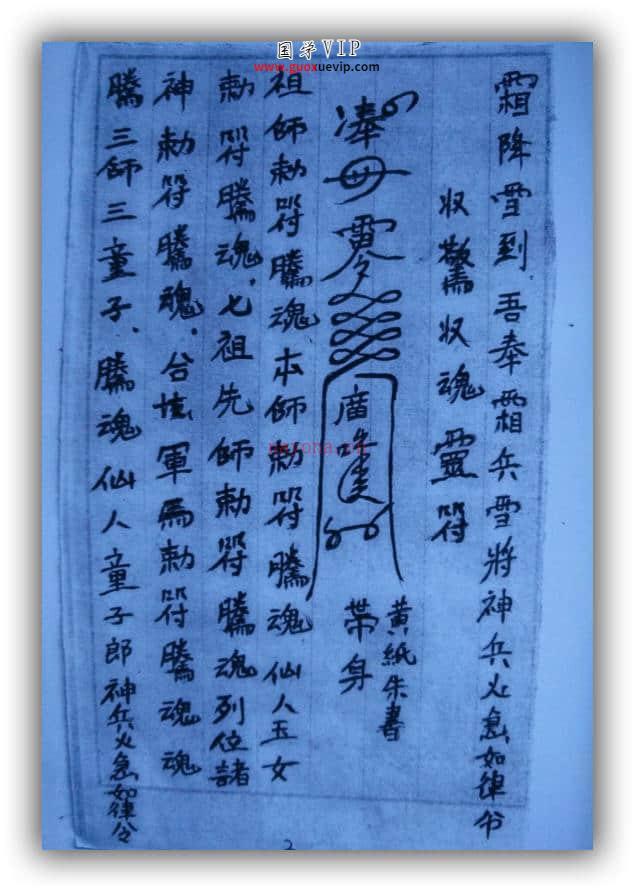 国学VIP
www.guoxuevip.com
霜降雪到、吾奉霜兵雪將神兵火急如律令
収驚収魂靈符
奉
廣
黃紙朱書
帶身
祖師勅符騰魂、本師勅符騰魂仙人玉女
勅符騰魂、七祖先師勅符騰魂列位諸
神勅符騰魂、台 軍馬勅符騰魂魂
騰三師三童子、騰魂仙人童子郎神兵火急如律令
2